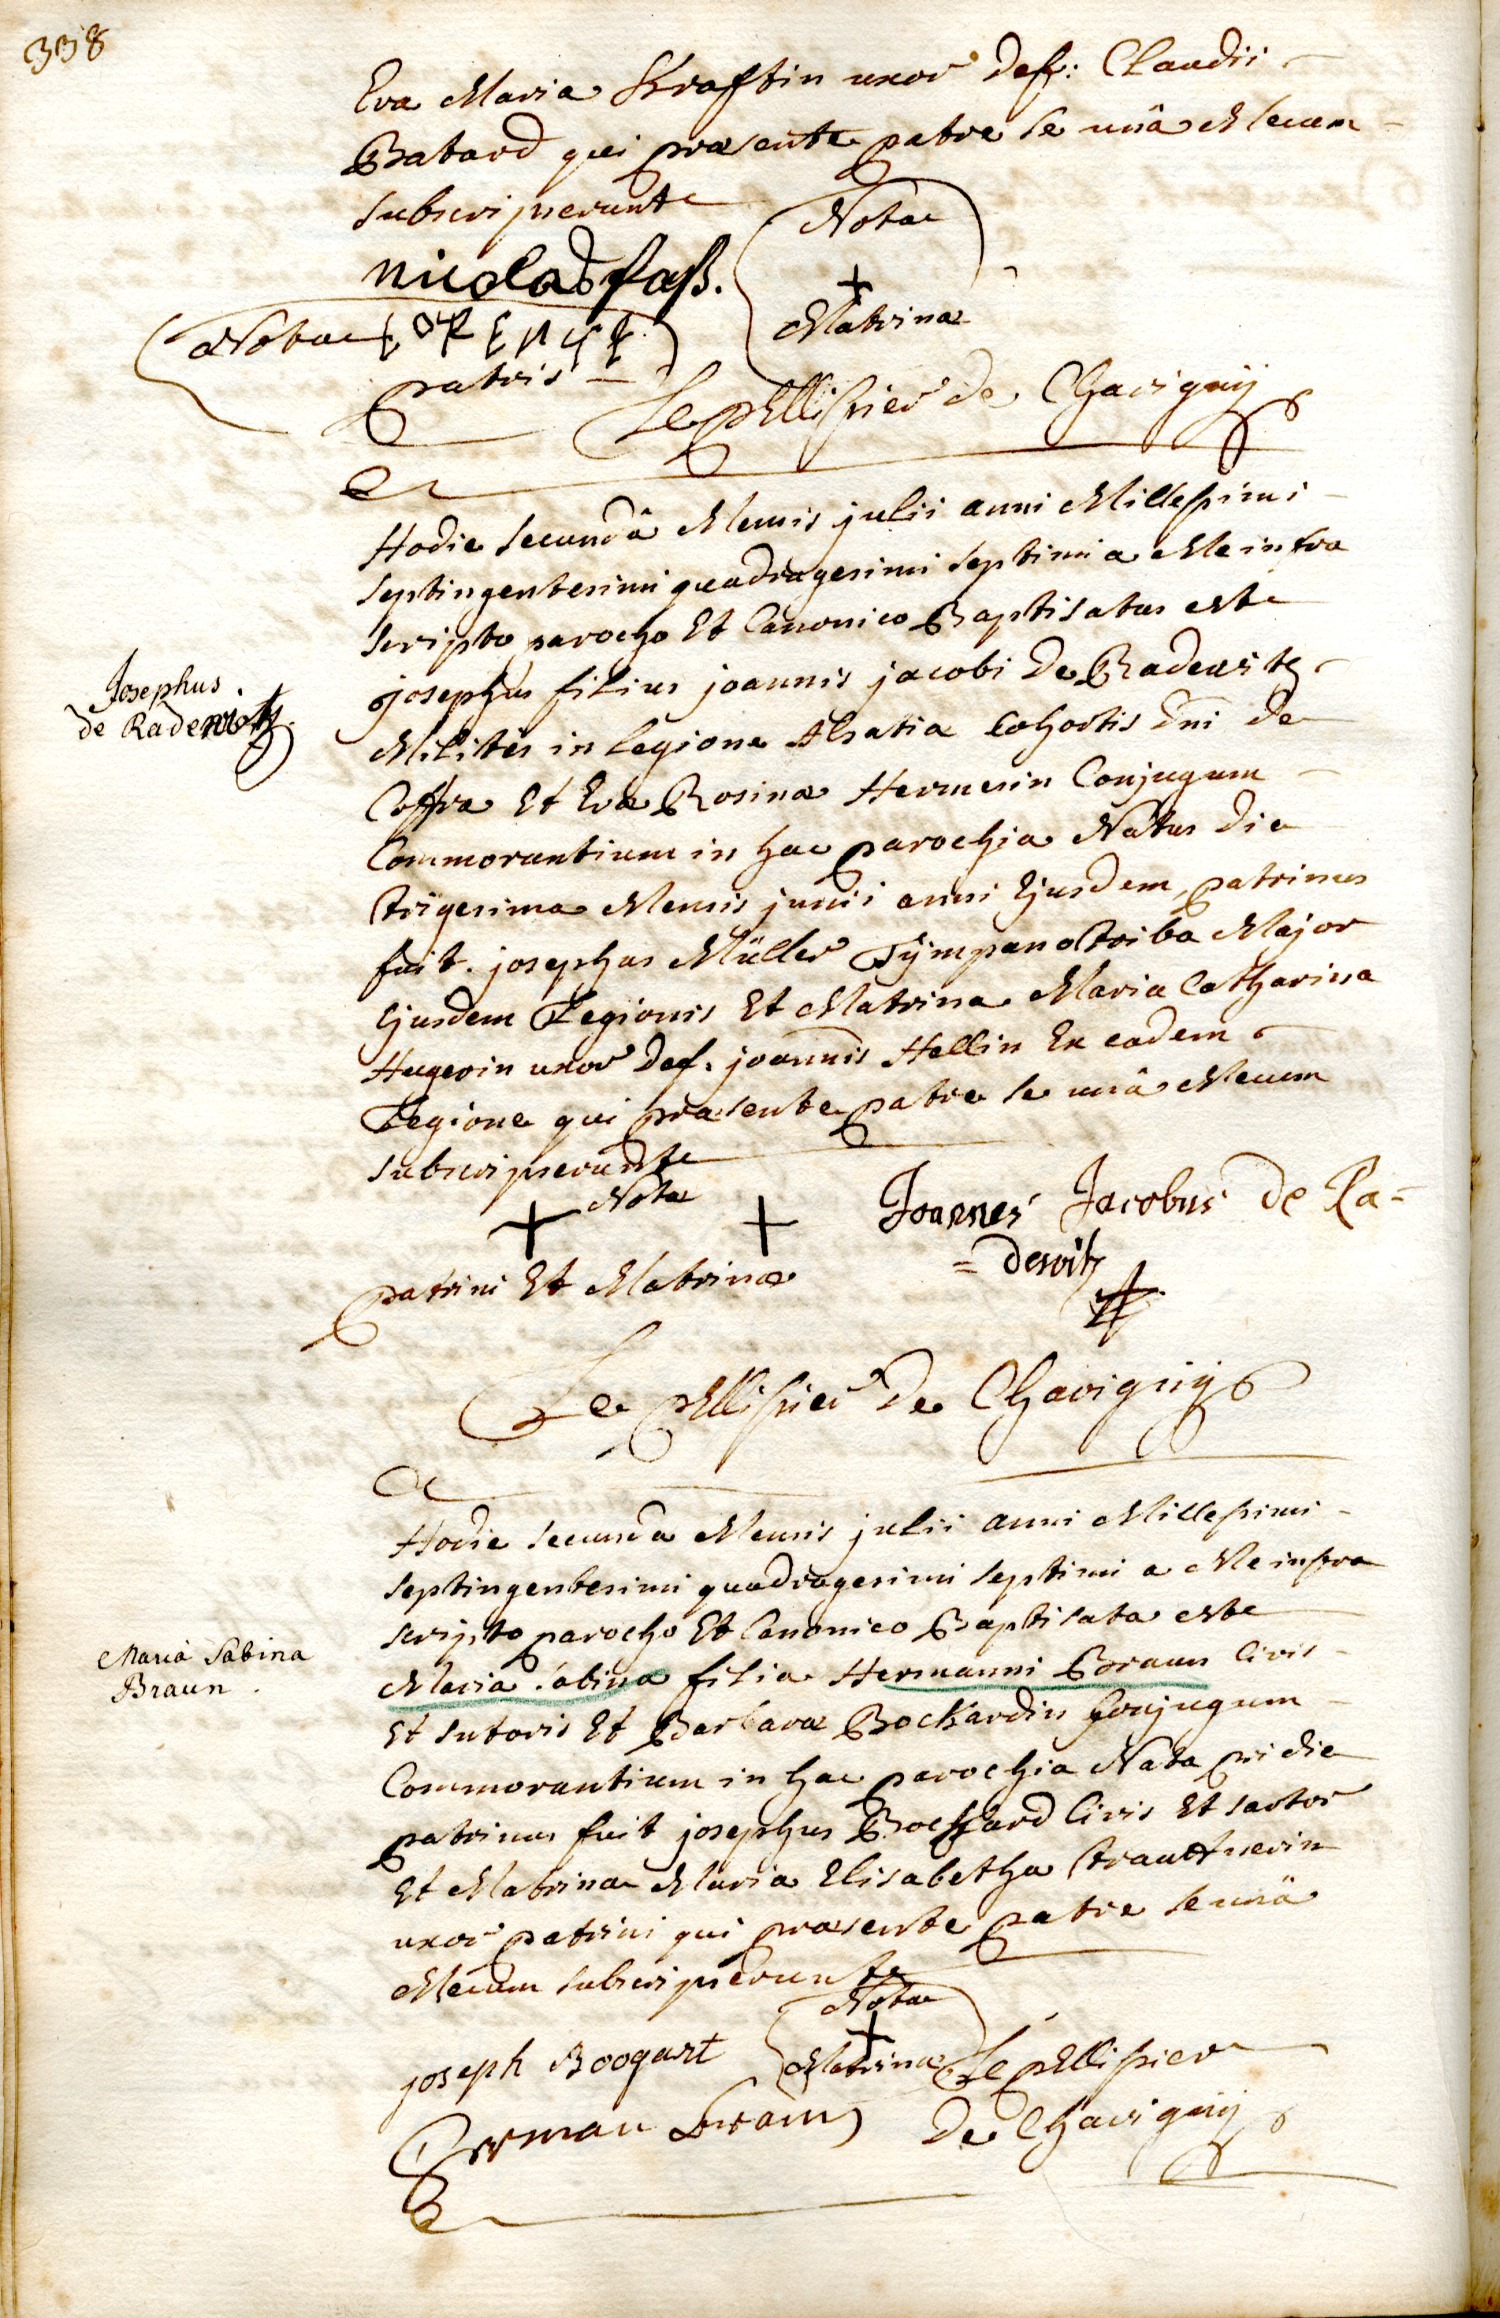 338
Eva Maria Kraftin uxor def: Claudii
Batard qui præsente patre se unâ Mecum
subscripserunt
Nota
nicolas faß.
+
Matrina
Nota
patris
Le pEllissier de Chavignÿ
Hodie secundâ Mensis julii anni Millessimi
septingentesimi quadragesimi septimi a Me infra
scripto parocho Et Canonico Baptisatus est
Josephus
de Radewitz.
josephus filius joannis jacobi De Radewitz
Militis in legione Alsatiæ Cohortis dni de
Coffra Et Evæ Rosinæ Hermesin Conjugum
Commorantium in hac parochia Natus die
trigesima Mensis junii anni Ejusdem, patrinus
fuit josephus Müller Tÿmpanotriba Major
Ejusdem Legionis Et Matrina Maria Catharina
Hugerin uxor def. joannis Hellin Ex eadem
Legione qui præsente patre se unâ Mecum
subscripserunt
Nota
+ +
patrini Et Matrinæ
Joannes Jacobus de Ra=
=dewitz
Le pEllissier De Chavignÿ
Hodie secunda Mensis julii anni Millessimi
septingentesimi quadragesimi septimi a Me infra
scripto parocho Et Canonico Baptisata est
Maria Sabina
Braun.
Maria Sabina filia Hermanni Braun Civis
Et sutoris Et Barbaræ Bockardin Conjugum
Commorantium in hac parochia Nata pridie
patrinus fuit josephus Bockard Civis Et sartor
Et Matrina Maria Elisabetha Trauttnerin
uxor patrini qui præsente patre se unâ
Mecum subscripserunt
Nota
+
Matrinæ
joseph Boogart
Le pEllissier
De Chavignÿ
Herman Braun